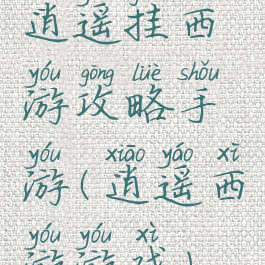 逍遥挂西
yóu gōng lüè shǒu
游攻略手
yóu xiāo yáo xī
游(逍遥西
yóu yóu xì
游游戏)